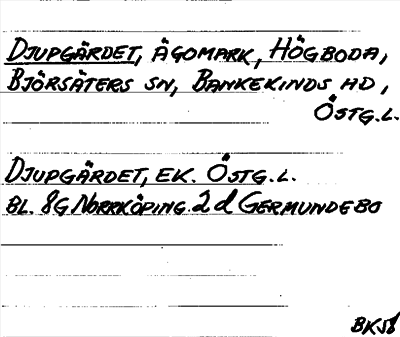 DJUPGÄRDET, ÄGOMARK, HÖGBODA,
BJÖRSÄTERS SN, BANKEKINDS HD,
ÖSTG.L.
DJUPGÄRDET, EK. ÖSTG.L.
BL. 8G NORRKÖPING 2d GERMUNDEBO
BKS8